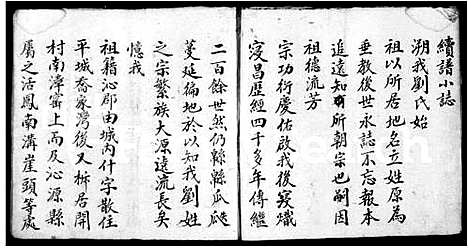 續譜小誌
溯我劉氏始
祖以所居地名立姓原為
垂教後世永誌不忘報本
追遠知所朝宗也嗣因
祖德流芳
宗功衍慶佑啟我後熾
寖昌歷經四千多年傳繼
二百餘世然仍緜緜瓜瓞
蔓延徧地於以知我劉姓
之宗繁族大源遠流長矣
憶我
祖籍沁郡由城內什字散住
平城喬家灣後又拆居開
村南漳
上而及沁源縣
屬之活鳳南溝崖頭等處